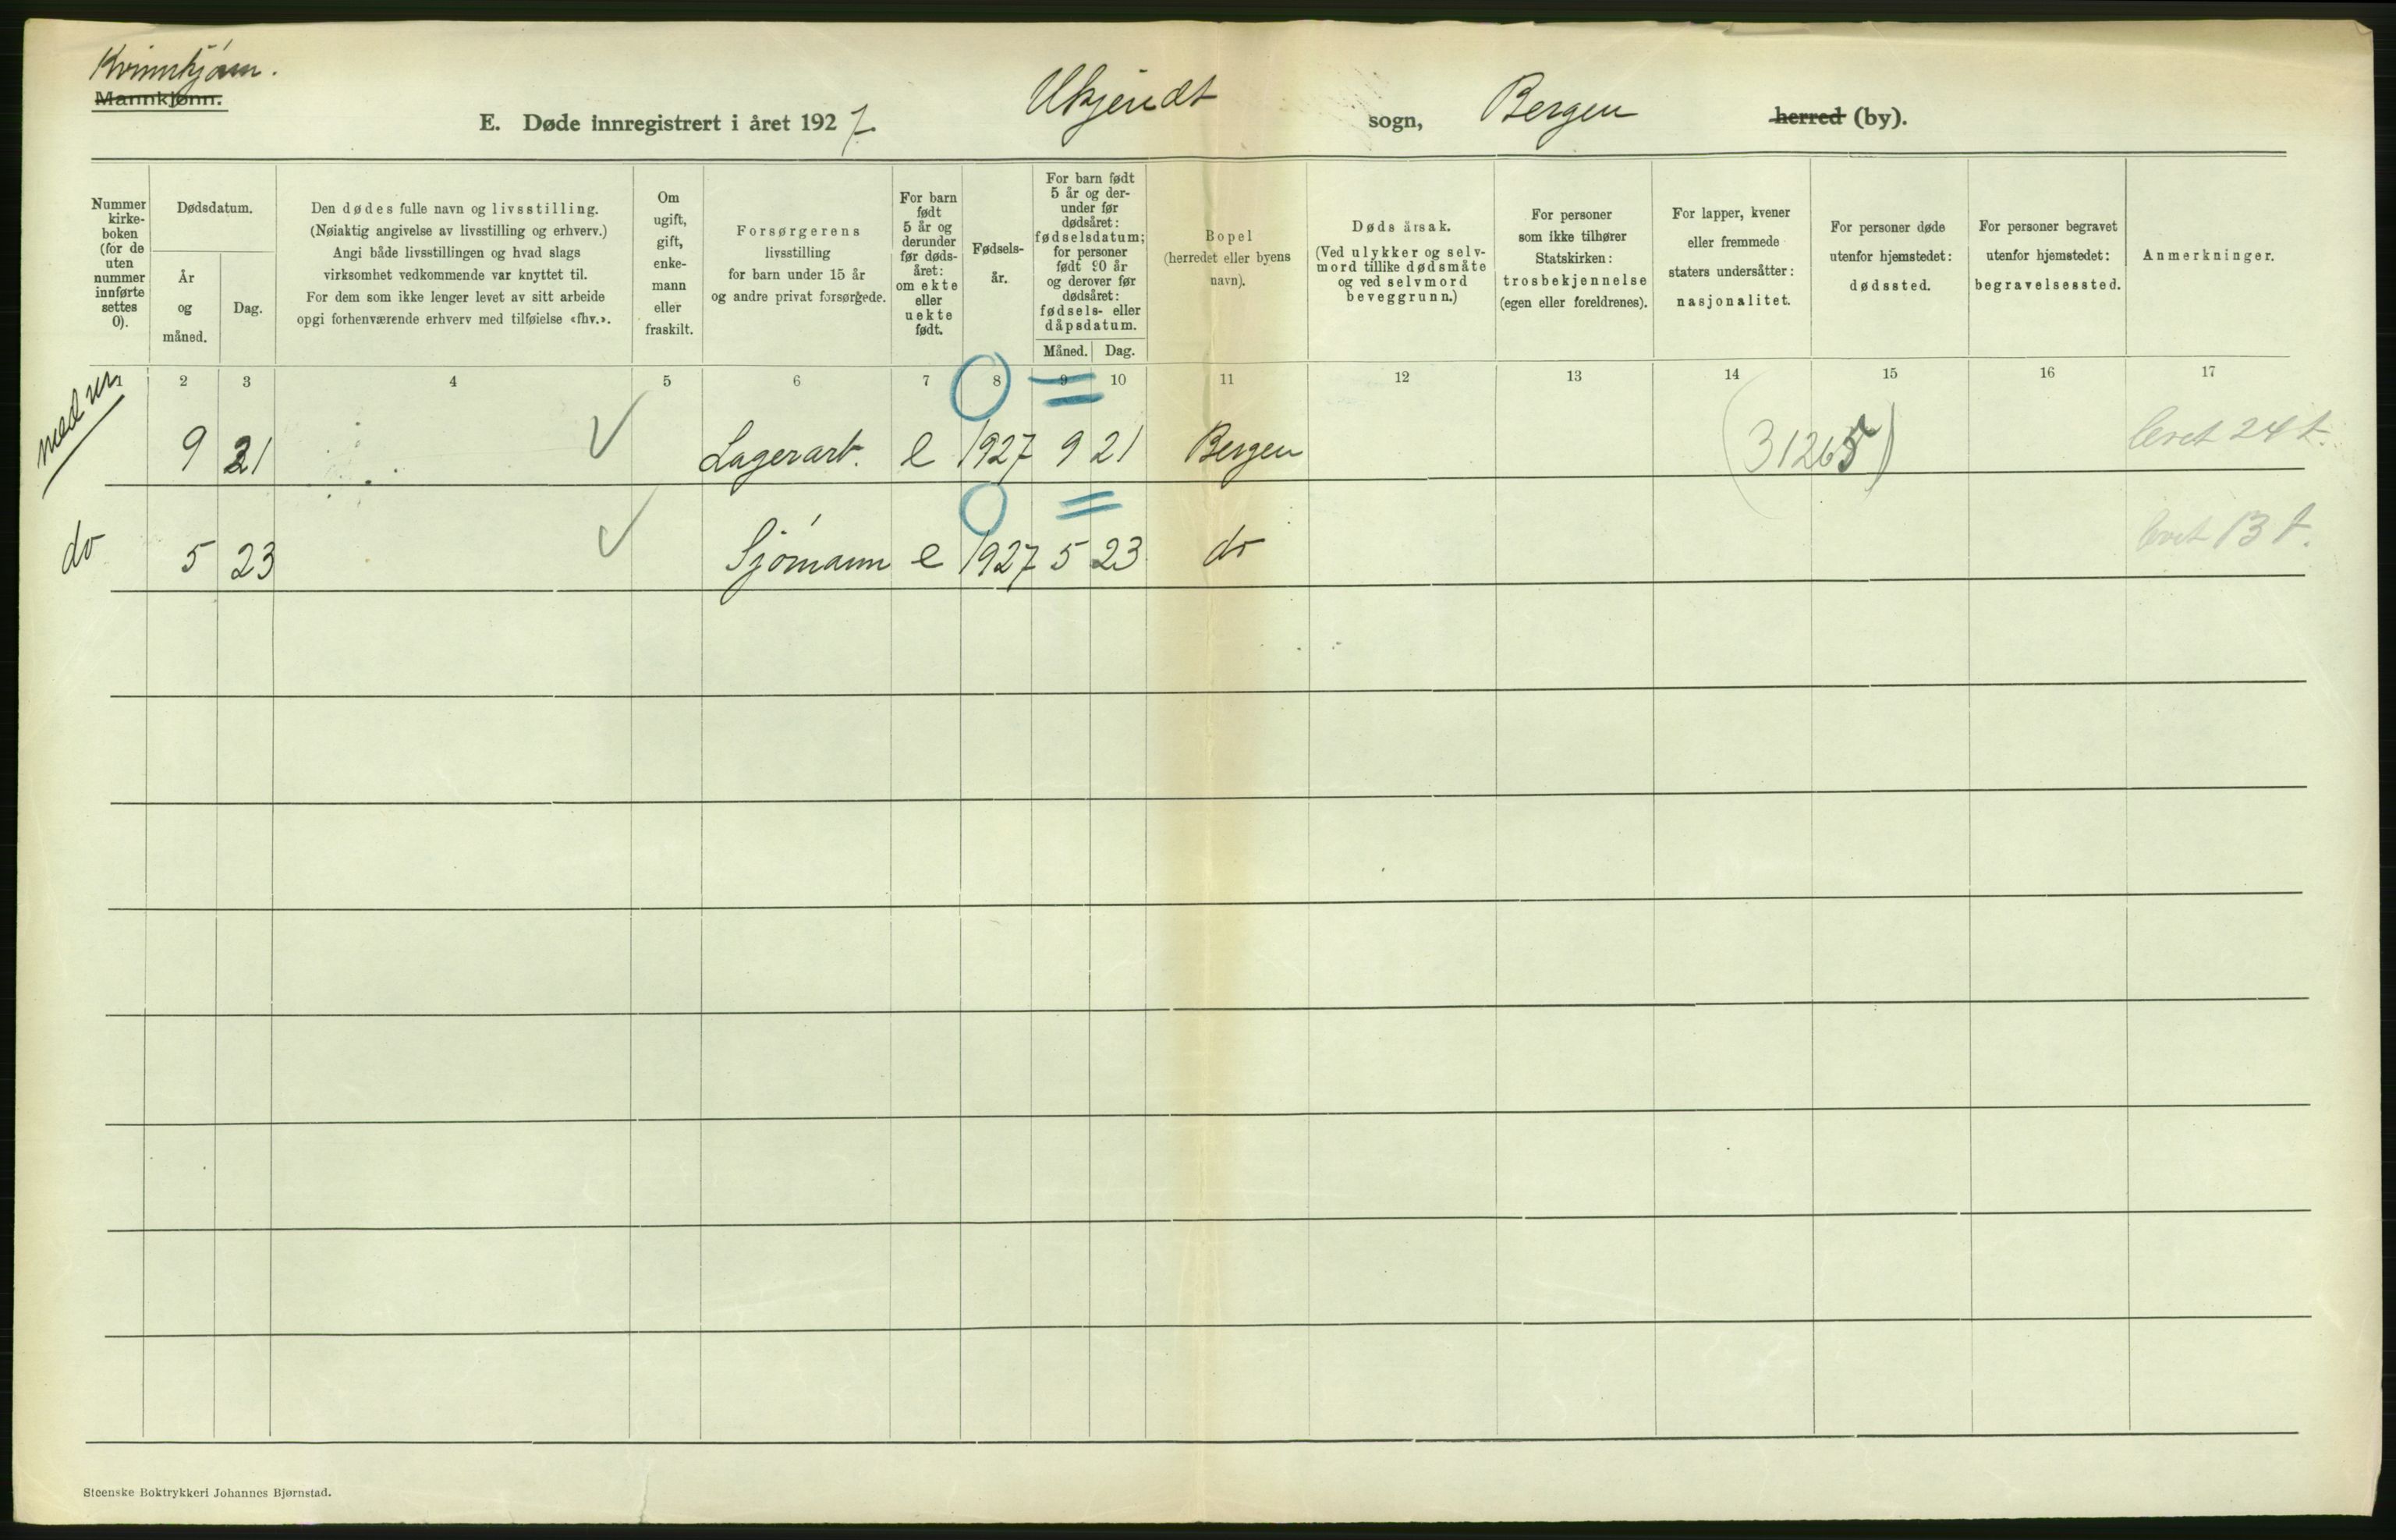 Kvinnkjønn.
Mannkjønn.
E. Døde innregistrert i året 1927. Ukjendt sogn, Bergen herred (by).
Nummer kirkeboken (for de uten nummer innførte settes 0).
Dødsdatum.
År og måned.
Dag.
Den dødes fulle navn og livsstilling.
(Nøiaktig angivelse av livsstilling og erhverv.)
Angi både livsstillingen og hvad slags
virksomhet vedkommende var knyttet til.
For dem som ikke lenger levet av sitt arbeide
opgi forhenværende erhverv med tilføielse «fhv.».
Om
ugift,
gift,
enke-
mann
eller
fraskilt.
Forsørgerens
livsstilling
for barn under 15 år
og andre privat forsørgede.
For barn
født
5 år og
derunder
før døds-
året:
om ekte
eller
uekte
født.
Fødsels-
år.
For barn født
5 år og der-
under før
dødsåret:
fødselsdatum;
for personer
født 90 år
og derover før
dødsåret:
fødsels- eller
dåpsdatum.
Måned. Dag.
Bopel
(herredet eller byens
navn).
Døds årsak.
(Ved ulykker og selv-
mord tillike dødsmåte
og ved selvmord
beveggrunn.)
For personer
som ikke tilhører
Statskirken:
trosbekjennelse
(egen eller foreldrenes).
For lapper, kvener
eller fremmede
staters undersåtter:
nasjonalitet.
For personer døde
utenfor hjemstedet:
dødssted.
For personer begravet
utenfor hjemstedet:
begravelsessted.
Anmerkninger.
1 2 3 4 5 6 7 8 9 10 11 12 13 14 15 16 17
9 21 Lagerarb. e 1927 9 21 Bergen (31265) levet 24 t.
do 5 23 Sjømann e 1927 5 23 do levet 13 t.
Steenske Boktrykkeri Johannes Bjørnstad.